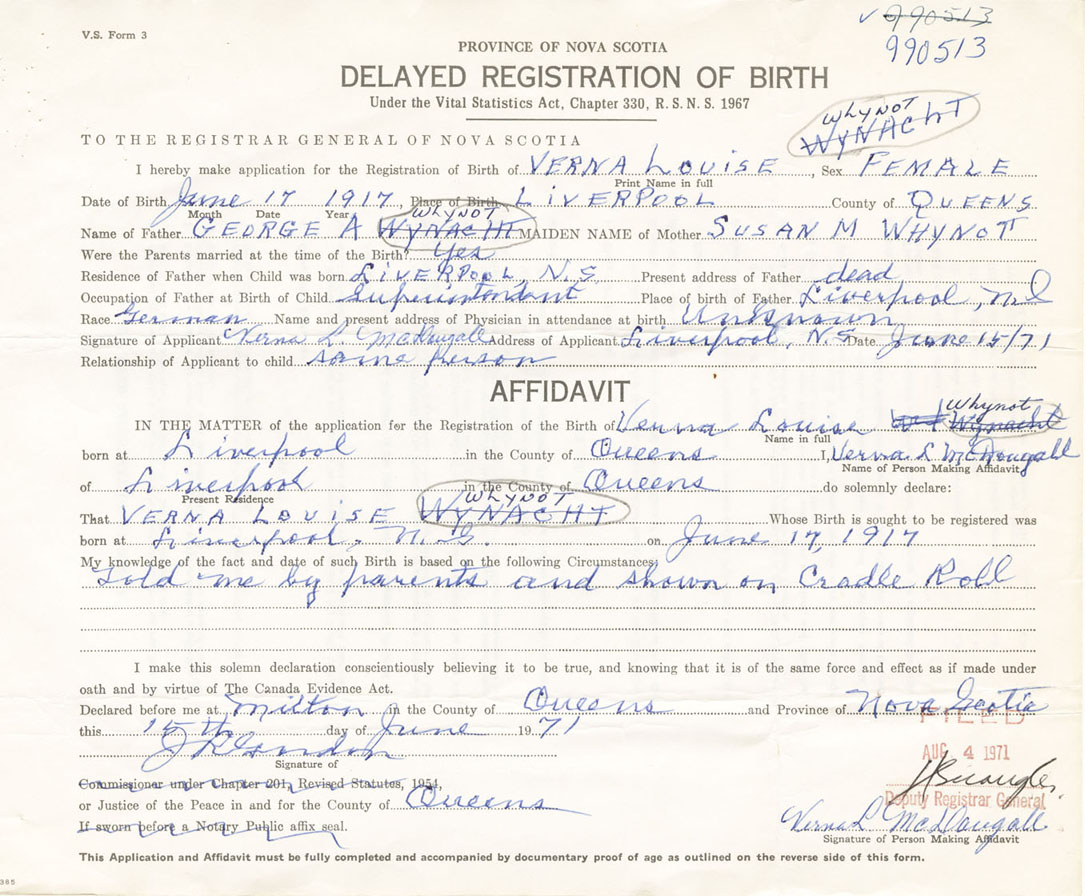 V.S. Form 3
990513
990513
PROVINCE OF NOVA SCOTIA
DELAYED REGISTRATION OF BIRTH
Under the Vital Statistics Act, Chapter 330, R. S. N. S. 1967
TO THE REGISTRAR GENERAL OF NOVA SCOTIA
WHYNOT
WYNACHT
I hereby make application for the Registration of Birth of VERNA LOUISE, Sex FEMALE
Print Name in full
Date of Birth June 17 1917, Place of Birth LIVERPOOL County of QUEENS
Month Date Year
WHYNOT
Name of Father GEORGE A WYNACHT MAIDEN NAME of Mother SUSAN M WHYNOT
Were the Parents married at the time of the Birth? Yes
Residence of Father when Child was born LIVERPOOL, N.S. Present address of Father dead
Occupation of Father at Birth of Child Superintendant Place of birth of Father Liverpool, N.S
Race German Name and present address of Physician in attendance at birth Unknown
Signature of Applicant Verna L. McDougall Address of Applicant Liverpool, N.S Date June 15/71
Relationship of Applicant to child same person
AFFIDAVIT
Whynot
IN THE MATTER of the application for the Registration of the Birth of Verna Louise Wynacht
Name in full
born at Liverpool in the County of Queens I, Verna L McDougall
Name of Person Making Affidavit
of Liverpool in the County of Queens do solemnly declare:
Present Residence
WHYNOT
That VERNA LOUISE WYNACHT Whose Birth is sought to be registered was
born at Liverpool, N.S. on June 17, 1917
My knowledge of the fact and date of such Birth is based on the following Circumstances:
Told me by parents and shown on Cradle Roll
I make this solemn declaration conscientiously believing it to be true, and knowing that it is of the same force and effect as if made under
oath and by virtue of The Canada Evidence Act.
Declared before me at Milton in the County of Queens and Province of Nova Scotia
FILED
this 15th day of June 1971
AUG. 4 1971
Signature of
Commissioner under Chapter 201, Revised Statutes, 1954,
or Justice of the Peace in and for the County of Queens
Deputy Registrar General
If sworn before a Notary Public affix seal.
Verna L McDougall
Signature of Person Making Affidavit
This Application and Affidavit must be fully completed and accompanied by documentary proof of age as outlined on the reverse side of this form.
385